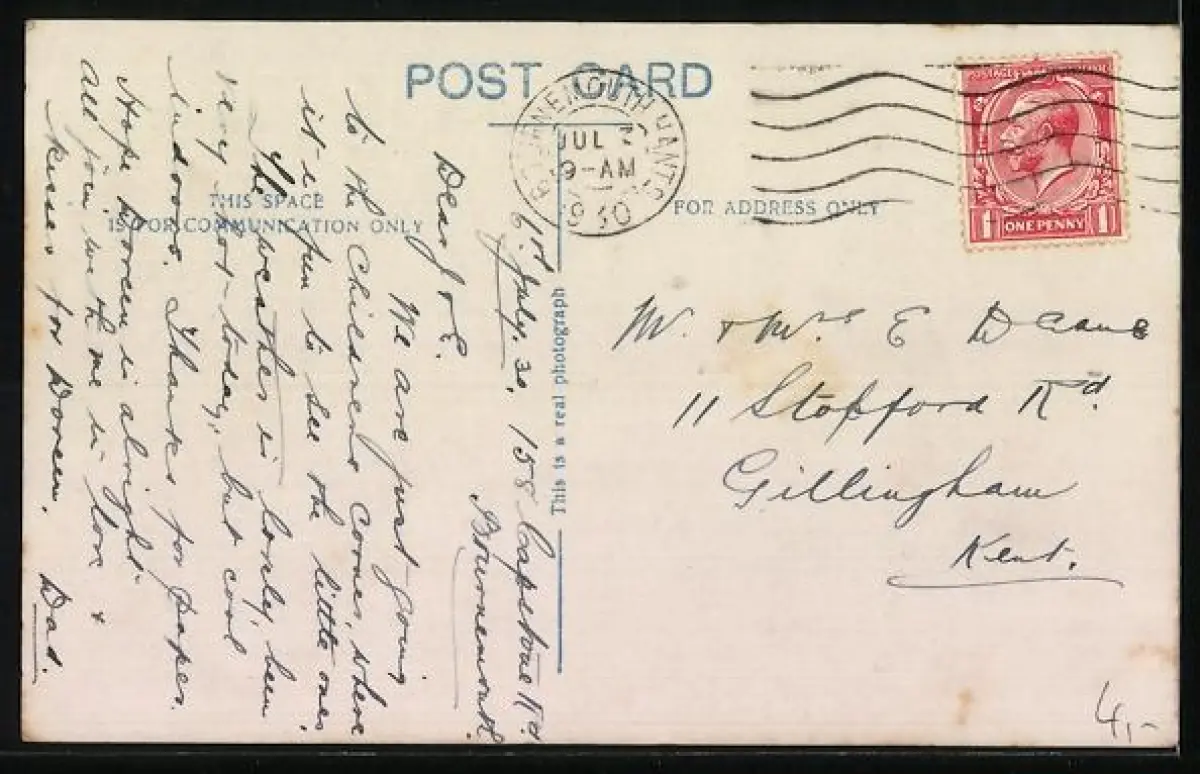 POST CARD
THIS SPACE
IS FOR COMMUNICATION ONLY
FOR ADDRESS ONLY
This is a real photograph
BOURNEMOUTH HANTS
JUL
9-AM
1930
POSTAGE REVENUE
1 ONE PENNY 1
158 Capstone Rd
Bournemouth.
July. 30.
Dear J & E.
We are just going
to the Childrens Corner, where
it is fun to see the little ones.
The weather is lovely, been
very hot today, but cool
indoors. Thanks for paper.
Hope Doreen is alright
all join with me in love &
kisses for Doreen. Dad.
Mr. & Mrs E Deane
11 Stopford Rd.
Gillingham
Kent.
4,-